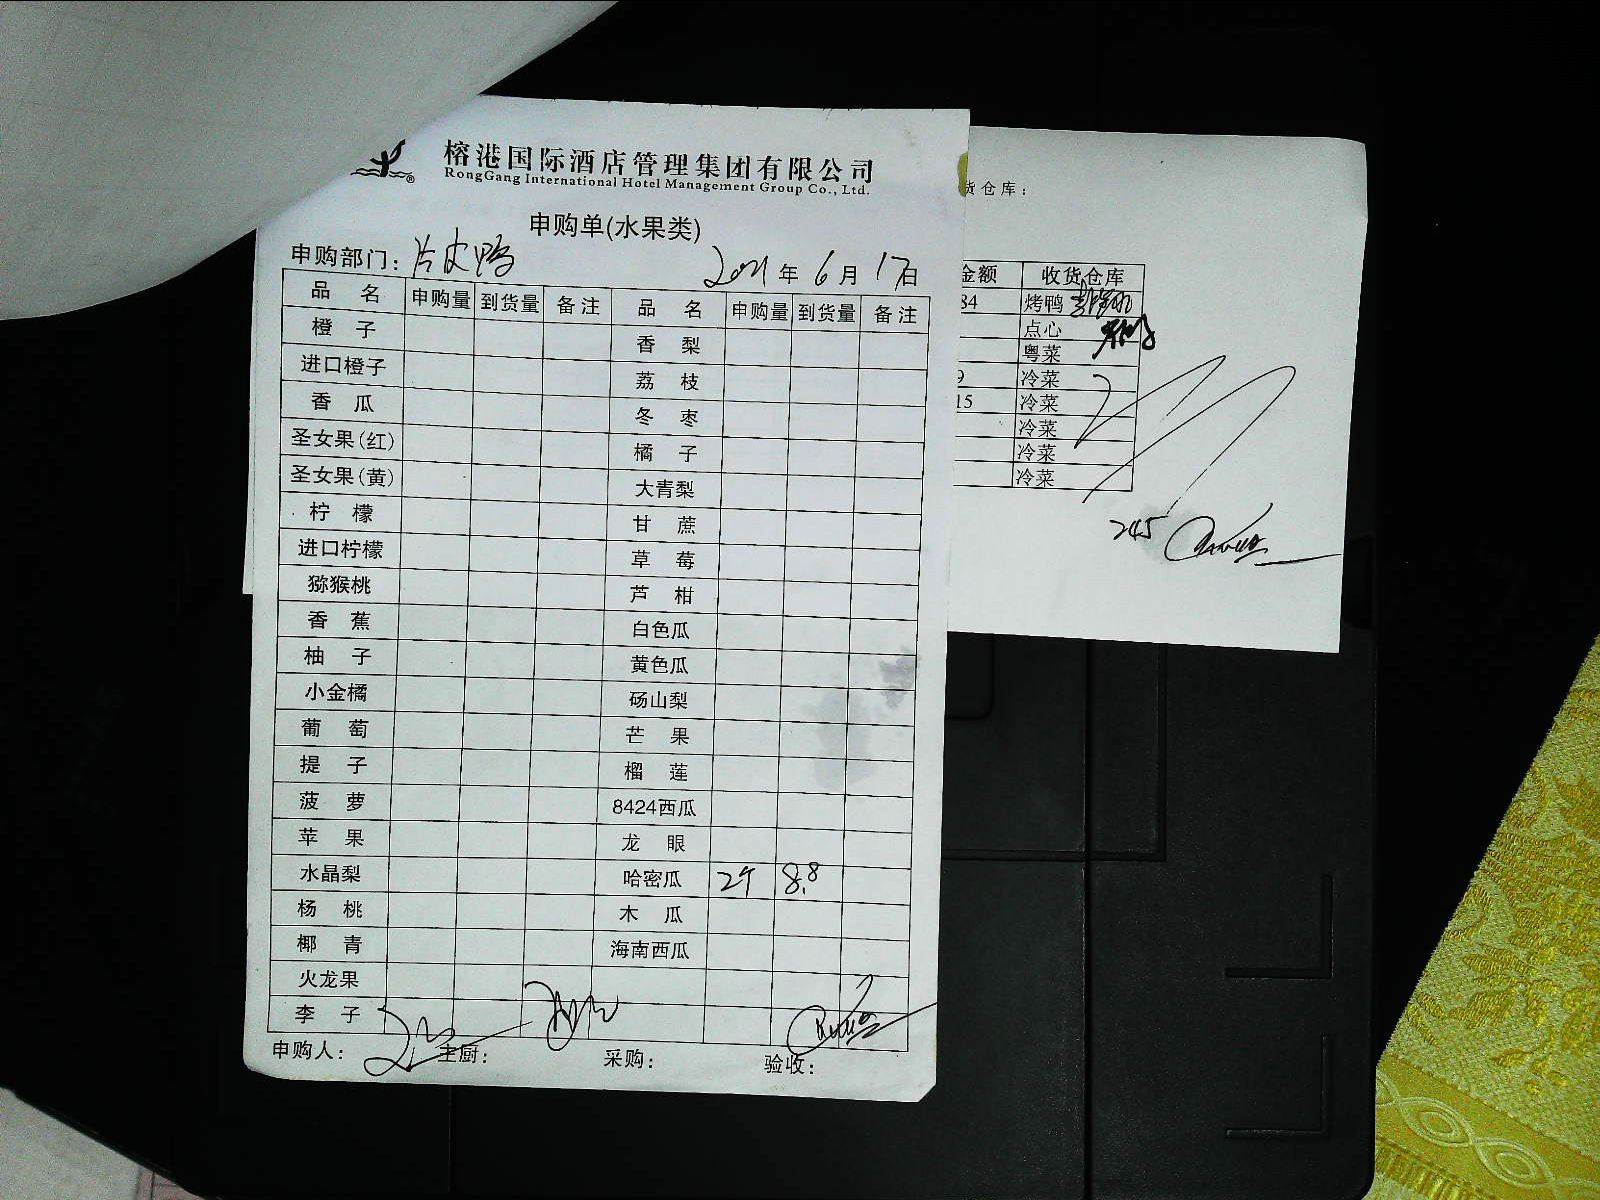 榕港国际酒店管理集团有限公司
RongGang International Hotel Management Group Co., Ltd.
申购单(水果类)
申购部门：片皮鸭 2021年6月17日
品名 申购量 到货量 备注 品名 申购量 到货量 备注
橙子 香梨
进口橙子 荔枝
香瓜 冬枣
圣女果(红) 橘子
圣女果(黄) 大青梨
柠檬 甘蔗
进口柠檬 草莓
猕猴桃 芦柑
香蕉 白色瓜
柚子 黄色瓜
小金橘 砀山梨
葡萄 芒果
提子 榴莲
菠萝 8424西瓜
苹果 龙眼
水晶梨 哈密瓜 2个 8.8
杨桃 木瓜
椰青 海南西瓜
火龙果
李子
申购人： 主厨： 采购： 验收：
货仓库：
金额 收货仓库
84 烤鸭
点心
粤菜
9 冷菜
15 冷菜
冷菜
冷菜
冷菜
245